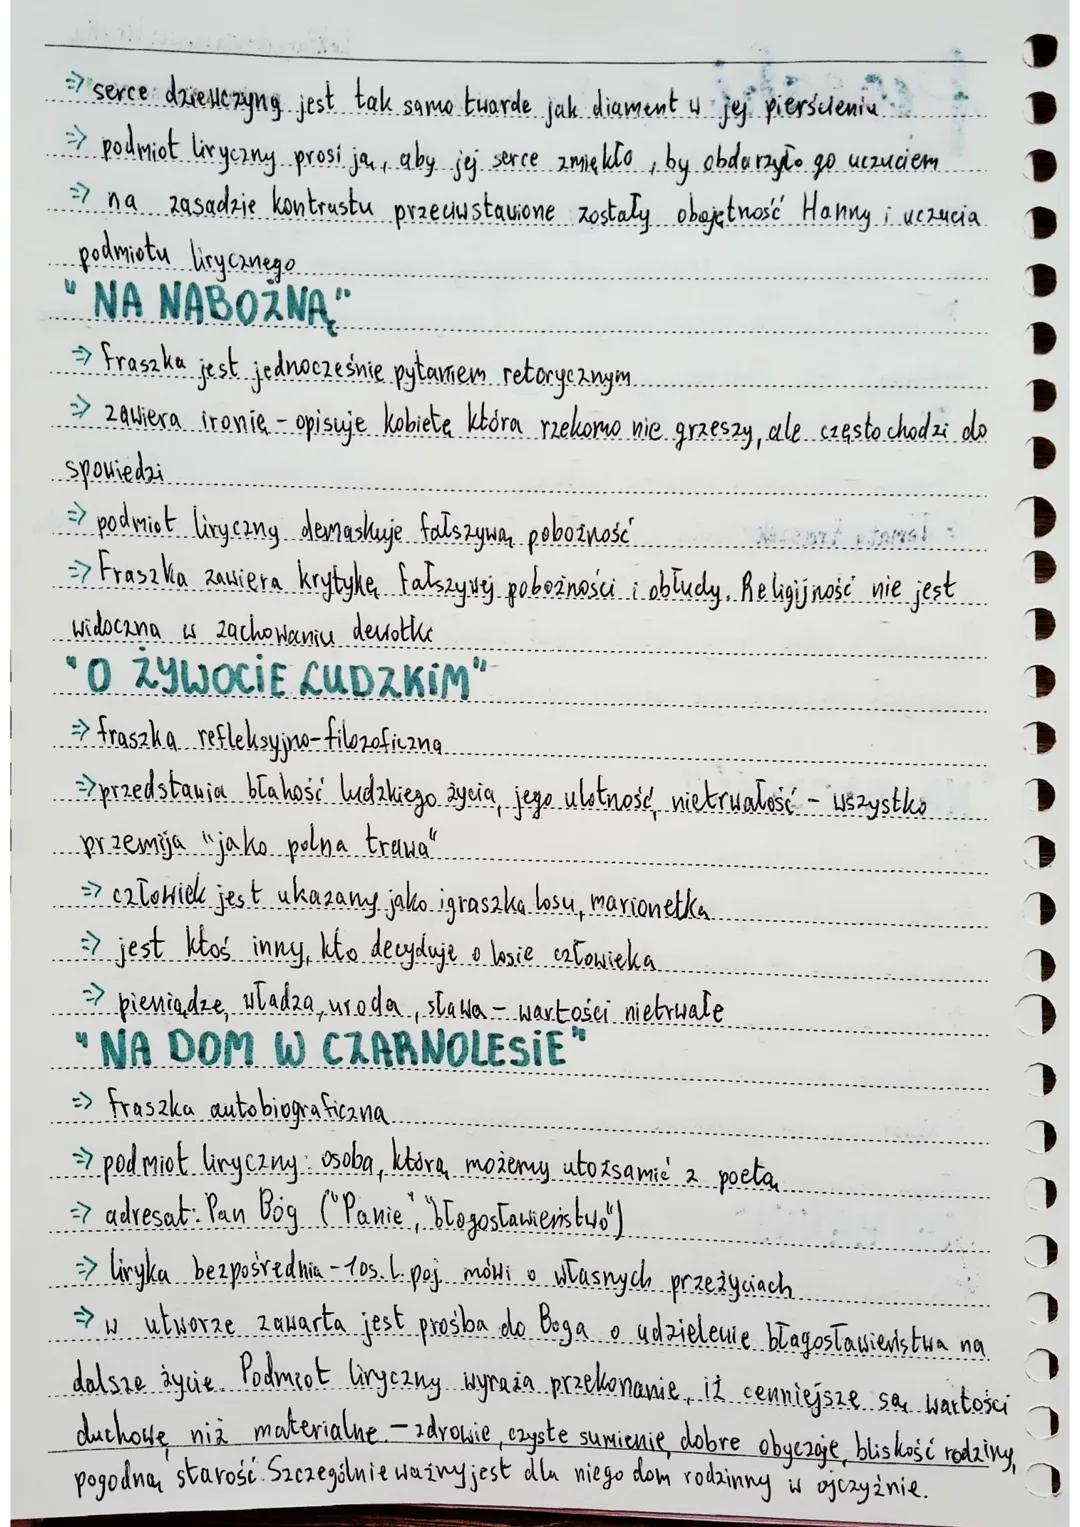 => serce dziewczyny jest tak samo twarde jak diament w jej pierścieniu
=> podmiot liryczny prosi ją, aby jej serce zmiękło, by obdarzyło go uczuciem
=> na zasadzie kontrastu przeciwstawione zostały obojętność Hanny i uczucia
podmiotu lirycznego
"NA NABOŻNĄ"
=> fraszka jest jednocześnie pytaniem retorycznym
=> zawiera ironię - opisuje kobietę która rzekomo nie grzeszy, ale często chodzi do
spowiedzi
=> podmiot liryczny demaskuje fałszywą pobożność
=> Fraszka zawiera krytykę fałszywej pobożności i obłudy. Religijność nie jest
widoczna w zachowaniu dewotki
"O ŻYWOCIE LUDZKIM"
=> fraszka refleksyjno-filozoficzna
=> przedstawia błahość ludzkiego życia, jego ulotność, nietrwałość - wszystko
przemija "jako polna trawa"
=> człowiek jest ukazany jako igraszka losu, marionetka
=> jest ktoś inny, kto decyduje o losie człowieka
=> pieniądze, władza, uroda, sława - wartości nietrwałe
"NA DOM W CZARNOLESIE"
=> fraszka autobiograficzna
=> podmiot liryczny: osoba, którą możemy utożsamić z poetą
=> adresat: Pan Bóg ("Panie", "błogosławieństwo")
=> liryka bezpośrednia - 1os. l. poj. mówi o własnych przeżyciach
=> w utworze zawarta jest prośba do Boga o udzielenie błagosławieństwa na
dalsze życie. Podmiot liryczny wyraża przekonanie, iż cenniejsze są wartości
duchowe niż materialne - zdrowie, czyste sumienie, dobre obyczaje, bliskość rodziny,
pogodną starość. Szczególnie ważny jest dla niego dom rodzinny w ojczyźnie.